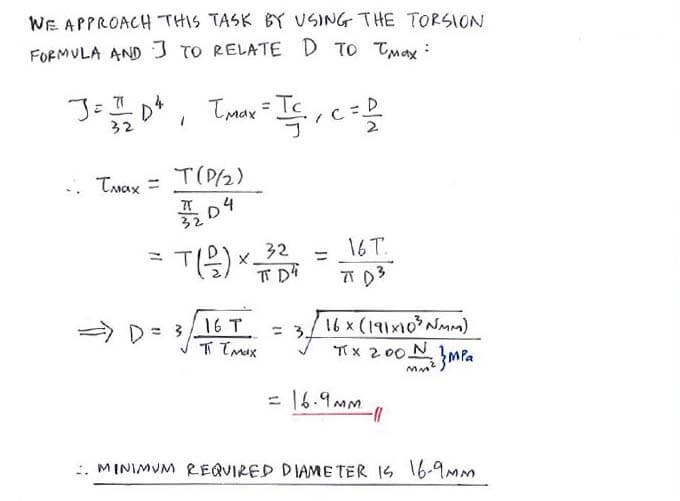 WE APPROACH THIS TASK BY USING THE TORSION
FORMULA AND J TO RELATE D TO τMax :
J = π/32 D⁴ , τMax = Tc/J , c = D/2
∴ τMax = T(D/2) / (π/32 D⁴)
= T(D/2) × 32/πD⁴ = 16T/πD³
⟹ D = ³√(16T / π τMax) = ³√(16 × (191×10³ Nmm) / π × 200 N/mm²) } MPa
= 16.9mm
∴ MINIMUM REQUIRED DIAMETER IS 16.9mm